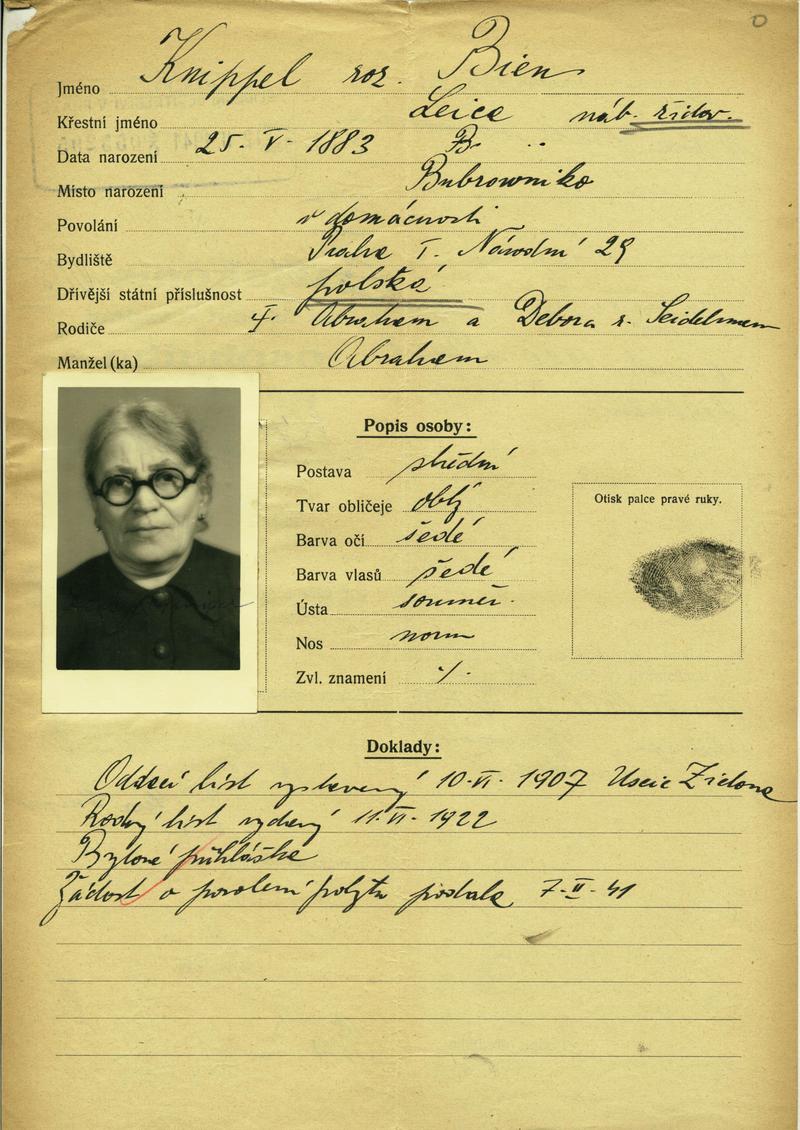 Jméno Knippel roz. Bien
Křestní jméno Leica náb. židov.
Data narození 25. V. 1883
Místo narození Bubrowniko
Povolání v domácnosti
Bydliště Praha I. Národní 29
Dřívější státní příslušnost polská
Rodiče Abraham a Debora r. Seidelmann
Manžel (ka) Abraham
Popis osoby:
Postava střední
Tvar obličeje oblý
Barva očí šedé
Barva vlasů šedé
Ústa souměr.
Nos norm
Zvl. znamení ./.
Otisk palce pravé ruky.
Doklady:
Oddací list vystavený 10. VI. 1907 Uscie Zielone
Rodný list vydaný 11. VI. 1922
Bytové přihláška
Žádost o povolení pobytu podala 7. II. 41